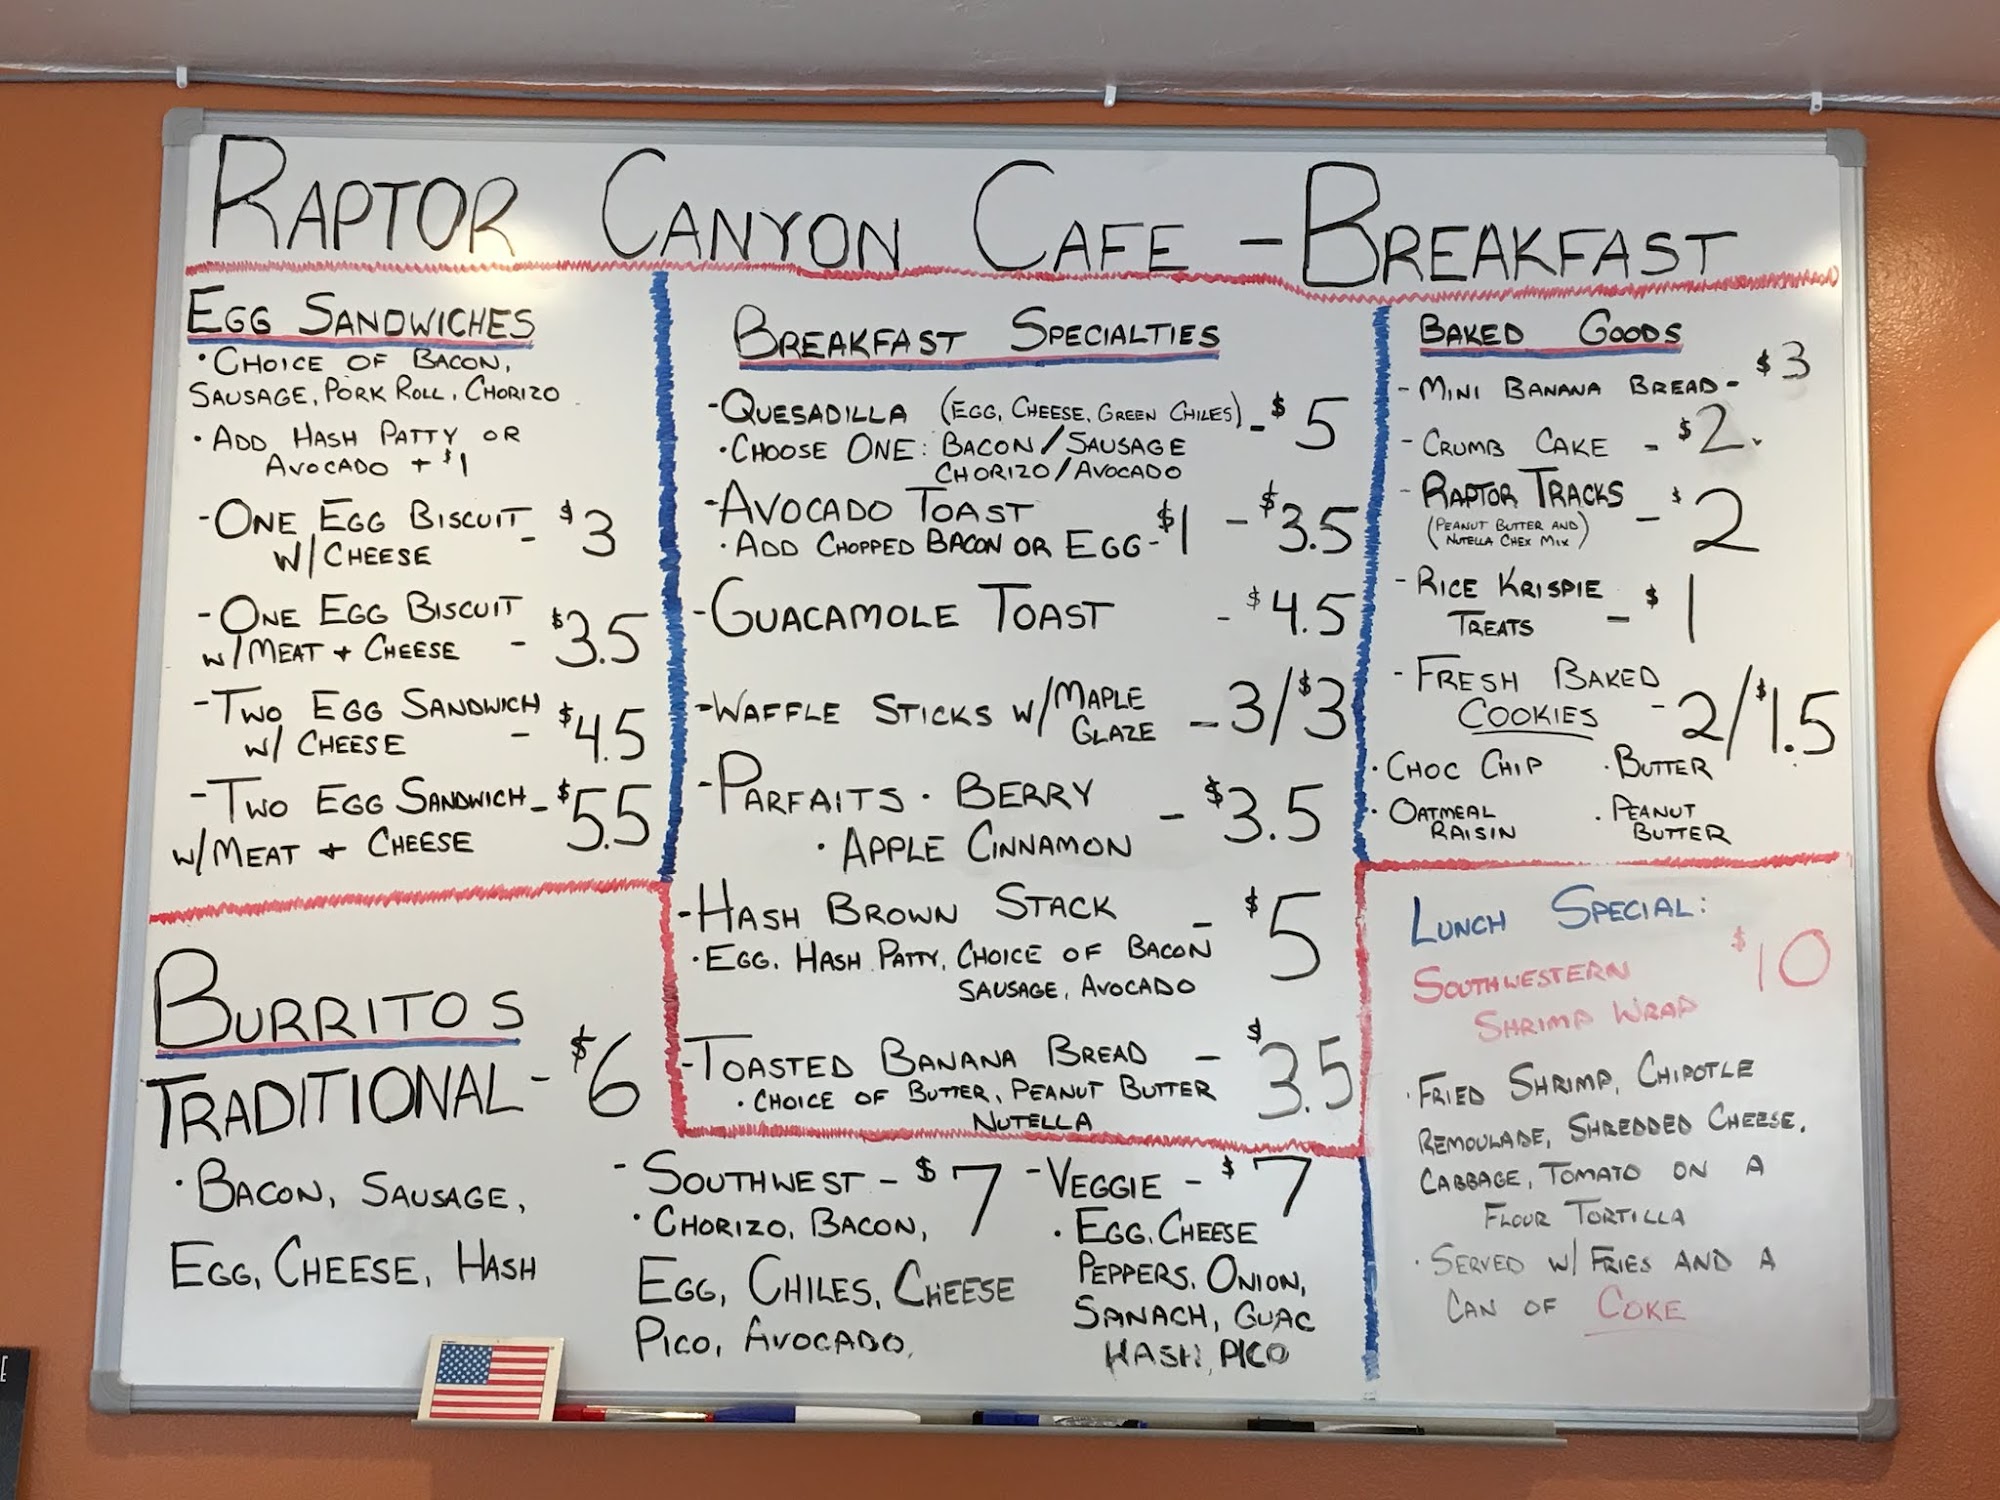 RAPTOR CANYON CAFE - BREAKFAST
EGG SANDWICHES
• CHOICE OF BACON,
SAUSAGE, PORK ROLL, CHORIZO
• ADD HASH PATTY OR
AVOCADO + $1
- ONE EGG BISCUIT - $3
W/ CHEESE
- ONE EGG BISCUIT
W/ MEAT + CHEESE - $3.5
- TWO EGG SANDWICH
W/ CHEESE - $4.5
- TWO EGG SANDWICH - $5.5
W/ MEAT + CHEESE
BREAKFAST SPECIALTIES
- QUESADILLA (EGG, CHEESE, GREEN CHILES) - $5
• CHOOSE ONE: BACON/SAUSAGE
CHORIZO/AVOCADO
- AVOCADO TOAST - $3.5
• ADD CHOPPED BACON OR EGG - $1
- GUACAMOLE TOAST - $4.5
- WAFFLE STICKS W/ MAPLE - 3/$3
GLAZE
- PARFAITS • BERRY - $3.5
• APPLE CINNAMON
- HASH BROWN STACK - $5
• EGG, HASH PATTY, CHOICE OF BACON
SAUSAGE, AVOCADO
- TOASTED BANANA BREAD - $3.5
• CHOICE OF BUTTER, PEANUT BUTTER
NUTELLA
BAKED GOODS
- MINI BANANA BREAD - $3
- CRUMB CAKE - $2.
- RAPTOR TRACKS - $2
(PEANUT BUTTER AND
NUTELLA CHEX MIX)
- RICE KRISPIE
TREATS - $1
- FRESH BAKED
COOKIES - 2/$1.5
• CHOC CHIP • BUTTER
• OATMEAL • PEANUT
RAISIN BUTTER
BURRITOS
TRADITIONAL - $6
• BACON, SAUSAGE,
EGG, CHEESE, HASH
- SOUTHWEST - $7
• CHORIZO, BACON,
EGG, CHILES, CHEESE
PICO, AVOCADO,
- VEGGIE - $7
• EGG, CHEESE
PEPPERS, ONION,
SANACH, GUAC
HASH, PICO
LUNCH SPECIAL:
SOUTHWESTERN $10
SHRIMP WRAP
• FRIED SHRIMP, CHIPOTLE
REMOULADE, SHREDDED CHEESE,
CABBAGE, TOMATO ON A
FLOUR TORTILLA
• SERVED W/ FRIES AND A
CAN OF COKE